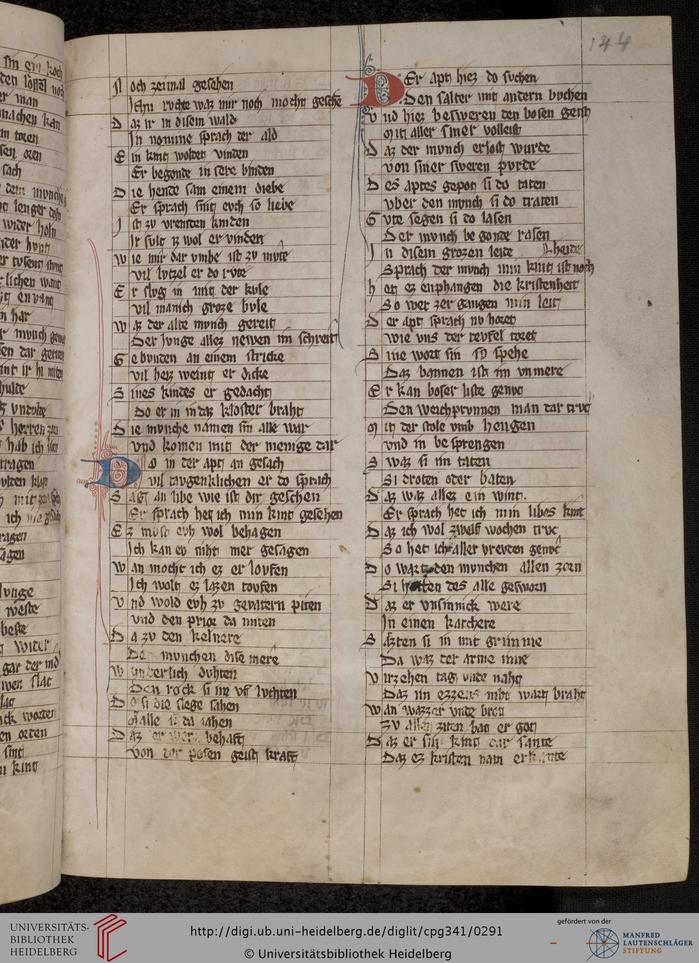 144
N och zeimal gesehen
Ichn ruchte waz mir noch mocht gesche
D az ir in disem wald
In nomine sprach der ald
E in kint woldet vinden
Er begonde in sere binden
D ie hende sam einem diebe
Er sprach sint euch so liebe
I st zu vremden kinden
Ir sult iz wol er vinden
W ie mir dar vmbe ist zu mute
vil lutzel er do rute
E r slug in mit der kule
vil manich groze bule
W az der alde munch gereit
Der Junge allez newen im schreit
G ebunden an einem stricke
vil heiz weint er dicke
S ines kindes er gedacht
Do er in in daz kloster braht
D ie munche namen sin alle war
vnd komen mit der menige dar
D o in der apt an gesach
vil taugenklichen er do sprach
S agt an libe wie ist dir geschen
Er sprach het ich min kint gesehen
E z must euh wol behagen
Ich kan ev niht mer gesagen
W an mocht ich ez er loufen
Ich wolt ez lazen toufen
V nd wold euh zu gevatern piten
vnd den prior da miten
D a zu den kelnere
Den munchen dise mere
W underlich duhten
Den rock si im vf luchten
D o si die slege sahen
D az er wer behaft
von der posen geist kraft
D Er apt hiez do suchen
Den salter mit andern buchen
V nd hiez besweren den bosen geist
Mit aller siner volleist
D az der munch erlost wurde
von siner sweren purde
D es aptes gepot si do taten
vber den munch si do traten
G ute segen si do lasen
Der munch be gonde rasen
I n disem grozen leide
Sprach der munch min kint ist noch heide
H et ez enphangen die kristenheit
So wer zer gangen min leit
D er apt sprach nu horet
wie vns der teufel toret
S ine wort sin so spehe
Daz bannen ist im vnmere
E r kan boser liste genuc
Den weichprunnen man dar truc
M it der stole vmb hengen
vnd in be sprengen
S waz si im taten
Si droten oder baten
D az waz allez ein wint
Er sprach het ich min libes kint
D az ich wol zwelf wochen truc
So het ich aller vreuden genuc
D o wart den munchen allen zorn
Si heten des alle gesworn
D az er vnsinnick were
In einen karchere
S azten si in mit grimme
Da waz der arme inne
V irzehen tag vnde naht
Daz im ezzens niht wart braht
W an wazzer vnde brot
zu allen ziten bat er got
D az er sin kint dar sante
Daz ez kristen nam erkante
UNIVERSITÄTS-
BIBLIOTHEK
HEIDELBERG
http://digi.ub.uni-heidelberg.de/diglit/cpg341/0291
© Universitätsbibliothek Heidelberg
gefördert von der
MANFRED
LAUTENSCHLÄGER
STIFTUNG